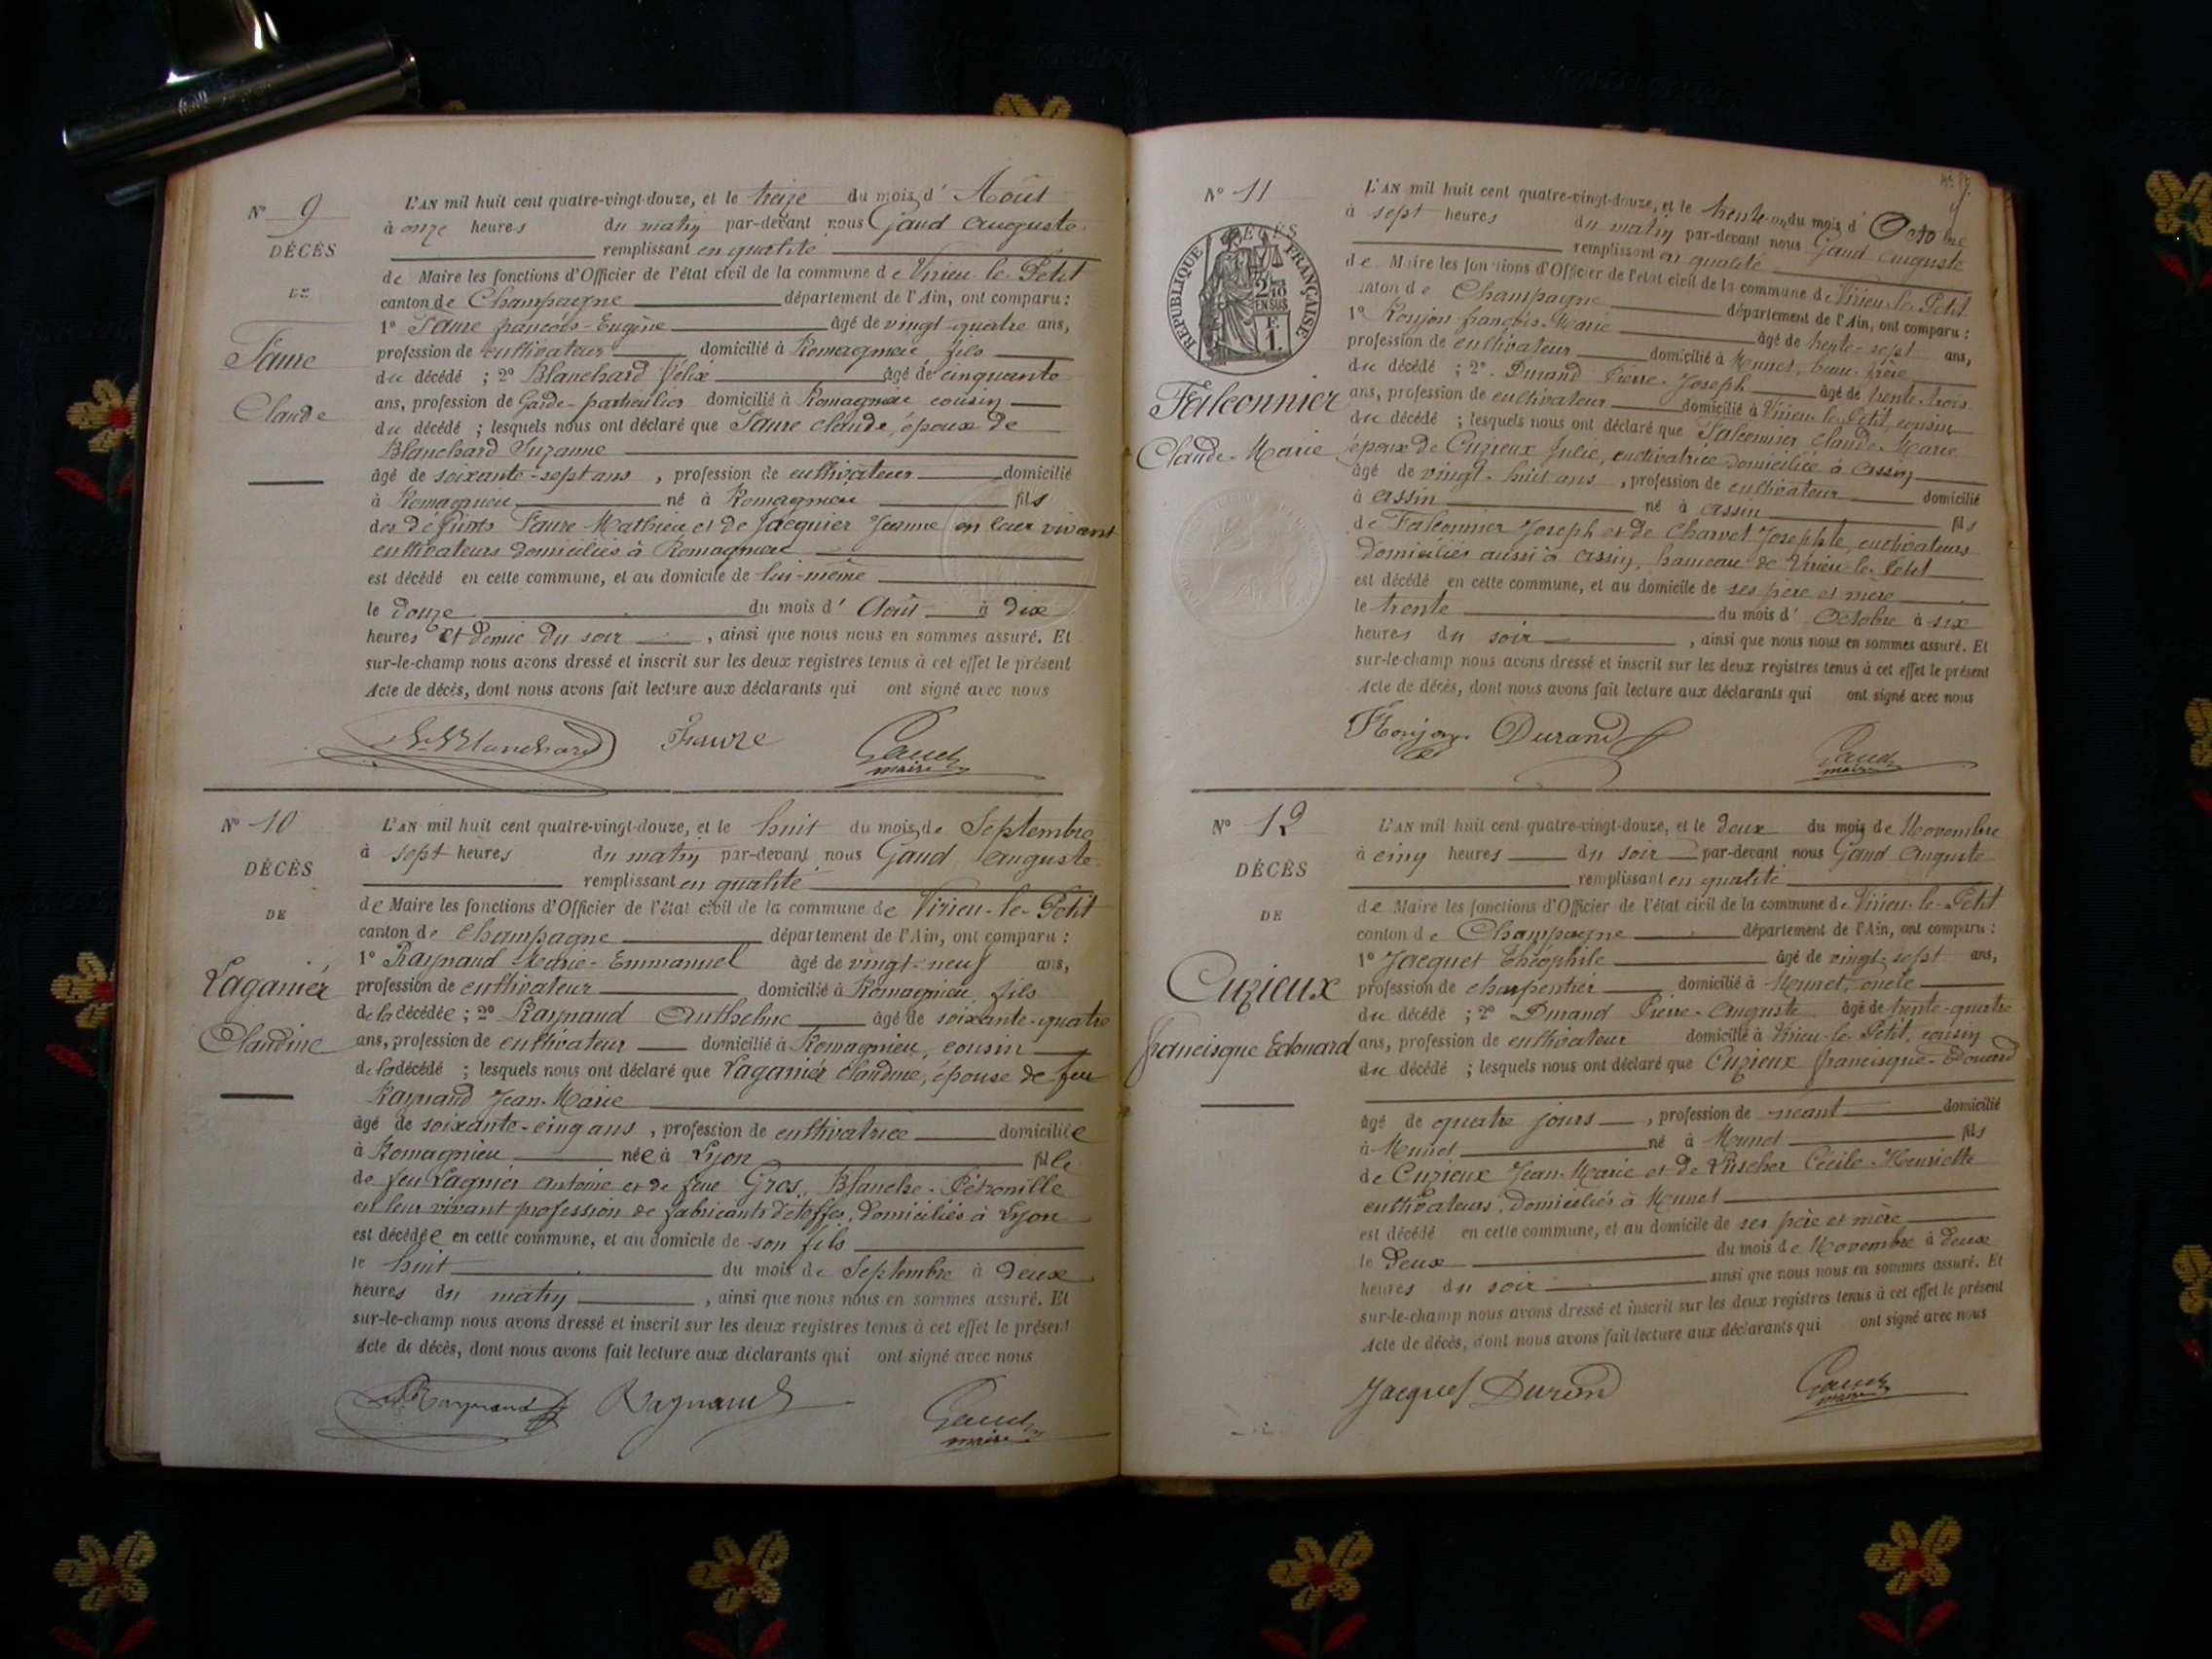 N° 9
DÉCÈS
DE
Faure
Claude
L'AN mil huit cent quatre-vingt-douze, et le treize du mois d' Août
à onze heures du matin par-devant nous Gaud Auguste
remplissant en qualité
de Maire les fonctions d'Officier de l'état civil de la commune de Virieu-le-Petit
canton de Champagne département de l'Ain, ont comparu :
1° Faure françois-Eugène âgé de vingt-quatre ans,
profession de cultivateur domicilié à Romagnieu, fils
du décédé ; 2° Blanchard félix âgé de cinquante
ans, profession de Garde-particulier domicilié à Romagnieu cousin
du décédé ; lesquels nous ont déclaré que Faure Claude, époux de
Blanchard Suzanne
âgé de soixante-sept ans, profession de cultivateur domicilié
à Romagnieu né à Romagnieu fils
des défunts Faure Mathieu et de Jacquier Jeanne en leur vivant
cultivateurs domiciliés à Romagnieu
est décédé en cette commune, et au domicile de lui-même
le douze du mois d' Août à dix
heures et demie du soir, ainsi que nous nous en sommes assuré. Et
sur-le-champ nous avons dressé et inscrit sur les deux registres tenus à cet effet le présent
Acte de décès, dont nous avons fait lecture aux déclarants qui ont signé avec nous
Blanchard Faure Gaud
maire
N° 10
DÉCÈS
DE
Laganier
Claudine
L'AN mil huit cent quatre-vingt-douze, et le huit du mois de Septembre
à sept heures du matin par-devant nous Gaud Auguste
remplissant en qualité
de Maire les fonctions d'Officier de l'état civil de la commune de Virieu-le-Petit
canton de Champagne département de l'Ain, ont comparu :
1° Raynaud Marie-Emmanuel âgé de vingt-neuf ans,
profession de cultivateur domicilié à Romagnieu, fils
de la décédée ; 2° Raynaud Anthelme âgé de soixante-quatre
ans, profession de cultivateur domicilié à Romagnieu, cousin
de la décédé ; lesquels nous ont déclaré que Laganier Claudine, épouse de feu
Raynaud Jean-Marie
âgé de soixante-cinq ans, profession de cultivatrice domiciliée
à Romagnieu née à Lyon fille
de feu Lagnier Antoine et de feue Gros, Blanche-Pétronille
en leur vivant profession de fabricants d'étoffes, domiciliés à Lyon
est décédée en cette commune, et au domicile de son fils
le huit du mois de Septembre à deux
heures du matin, ainsi que nous nous en sommes assuré. Et
sur-le-champ nous avons dressé et inscrit sur les deux registres tenus à cet effet le présent
Acte de décès, dont nous avons fait lecture aux déclarants qui ont signé avec nous
Raynaud Raynaud Gaud
maire
N° 11
DÉCÈS
REPUBLIQUE FRANÇAISE
Falconnier
Claude-Marie
L'AN mil huit cent quatre-vingt-douze, et le trente-un du mois d' Octobre
à sept heures du matin par-devant nous Gaud Auguste
remplissant en qualité
de Maire les fonctions d'Officier de l'état civil de la commune de Virieu-le-Petit
canton de Champagne département de l'Ain, ont comparu :
1° Ronjon françois-Marie âgé de trente-sept ans,
profession de cultivateur domicilié à Munet, beau-frère
du décédé ; 2° Durand Pierre-Joseph âgé de trente-trois
ans, profession de cultivateur domicilié à Virieu-le-Petit cousin
du décédé ; lesquels nous ont déclaré que Falconnier Claude-Marie
époux de Cuzieux Julie, cultivatrice domiciliée à Assin
âgé de vingt-huit ans, profession de cultivateur domicilié
à Assin né à Assin fils
de Falconnier Joseph et de Charvet Josephte, cultivateurs
domiciliés aussi à Assin, hameau de Virieu-le-Petit
est décédé en cette commune, et au domicile de ses père et mère
le trente du mois d' Octobre à six
heures du soir, ainsi que nous nous en sommes assuré. Et
sur-le-champ nous avons dressé et inscrit sur les deux registres tenus à cet effet le présent
Acte de décès, dont nous avons fait lecture aux déclarants qui ont signé avec nous
Ronjon Durand Gaud
maire
N° 12
DÉCÈS
DE
Cuzieux
francisque Edouard
L'AN mil huit cent quatre-vingt-douze, et le deux du mois de Novembre
à cinq heures du soir par-devant nous Gaud Auguste
remplissant en qualité
de Maire les fonctions d'Officier de l'état civil de la commune de Virieu-le-Petit
canton de Champagne département de l'Ain, ont comparu :
1° Jacquet Théophile âgé de vingt-sept ans,
profession de charpentier domicilié à Munet, oncle
du décédé ; 2° Durand Pierre-Auguste âgé de trente-quatre
ans, profession de cultivateur domicilié à Virieu-le-Petit, cousin
du décédé ; lesquels nous ont déclaré que Cuzieux francisque-Edouard
âgé de quatre jours, profession de néant domicilié
à Munet né à Munet fils
de Cuzieux Jean-Marie et de Luscher Cécile-Henriette
cultivateurs, domiciliés à Munet
est décédé en cette commune, et au domicile de ses père et mère
le deux du mois de Novembre à deux
heures du soir ainsi que nous nous en sommes assuré. Et
sur-le-champ nous avons dressé et inscrit sur les deux registres tenus à cet effet le présent
Acte de décès, dont nous avons fait lecture aux déclarants qui ont signé avec nous
Jacquet Durand Gaud
maire